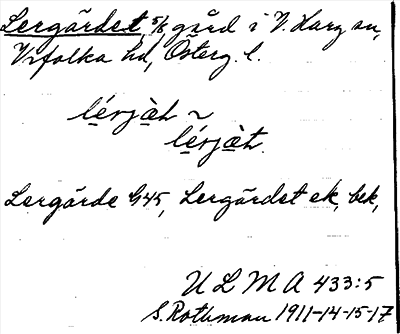 Lergärdet, 5/8 gård i V. Harg sn,
Vifolka hd, Österg. l.
lérjàt ~
lérjàt.
Lergärde G45, Lergärdet ek, bek,
ULMA 433:5
S. Rothman 1911-14-15-17